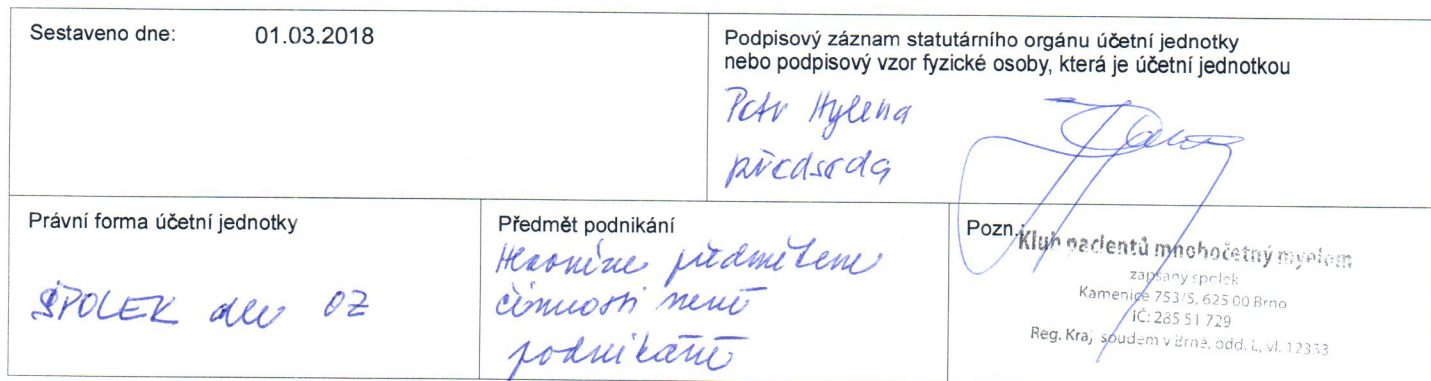 Sestaveno dne: 01.03.2018
Podpisový záznam statutárního orgánu účetní jednotky
nebo podpisový vzor fyzické osoby, která je účetní jednotkou
Petr Hylena
předseda
Právní forma účetní jednotky
SPOLEK dle OZ
Předmět podnikání
Hlavním předmětem
činnosti není
podnikání
Pozn.:
Klub pacientů mnohočetný myelom
zapsaný spolek
Kamenice 753/5, 625 00 Brno
IČ: 285 51 729
Reg. Kraj. soudem v Brně, odd. L, vl. 12333